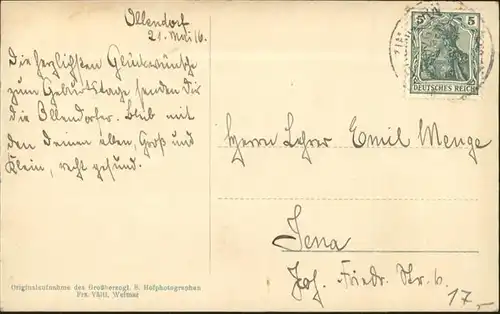 Ollendorf
21. Mai 16.
Die herzlichsten Glückwünsche
zum Geburtstage senden Dir
die Ollendorfer. Bleib mit
den Deinen allen, Groß und
Klein, recht gesund.
5 5
DEUTSCHES REICH
Herrn Lehrer Emil Menge
Jena
Joh. Friedr. Str. 6.
17.-
Originalaufnahme des Großherzogl. S. Hofphotographen
Weimar